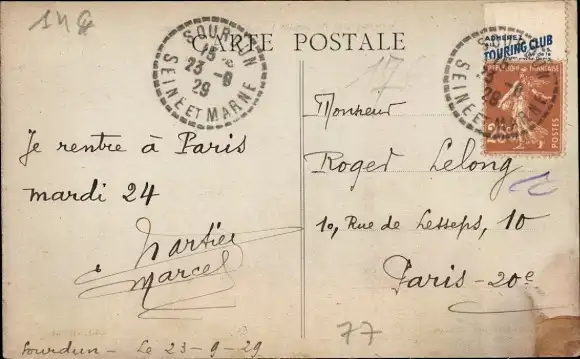 CARTE POSTALE
SOURDUN
15
23 -9
29
SEINE ET MARNE
ADHÉREZ
TOURING CLUB
SOURDUN
23 -9
29
SEINE ET MARNE
RÉPUBLIQUE FRANÇAISE
POSTES
Monsieur
Roger Lelong
10, Rue de Lesseps, 10
Paris - 20e
Je rentre à Paris
mardi 24
Marcel
77
Sourdun - Le 23-9-29